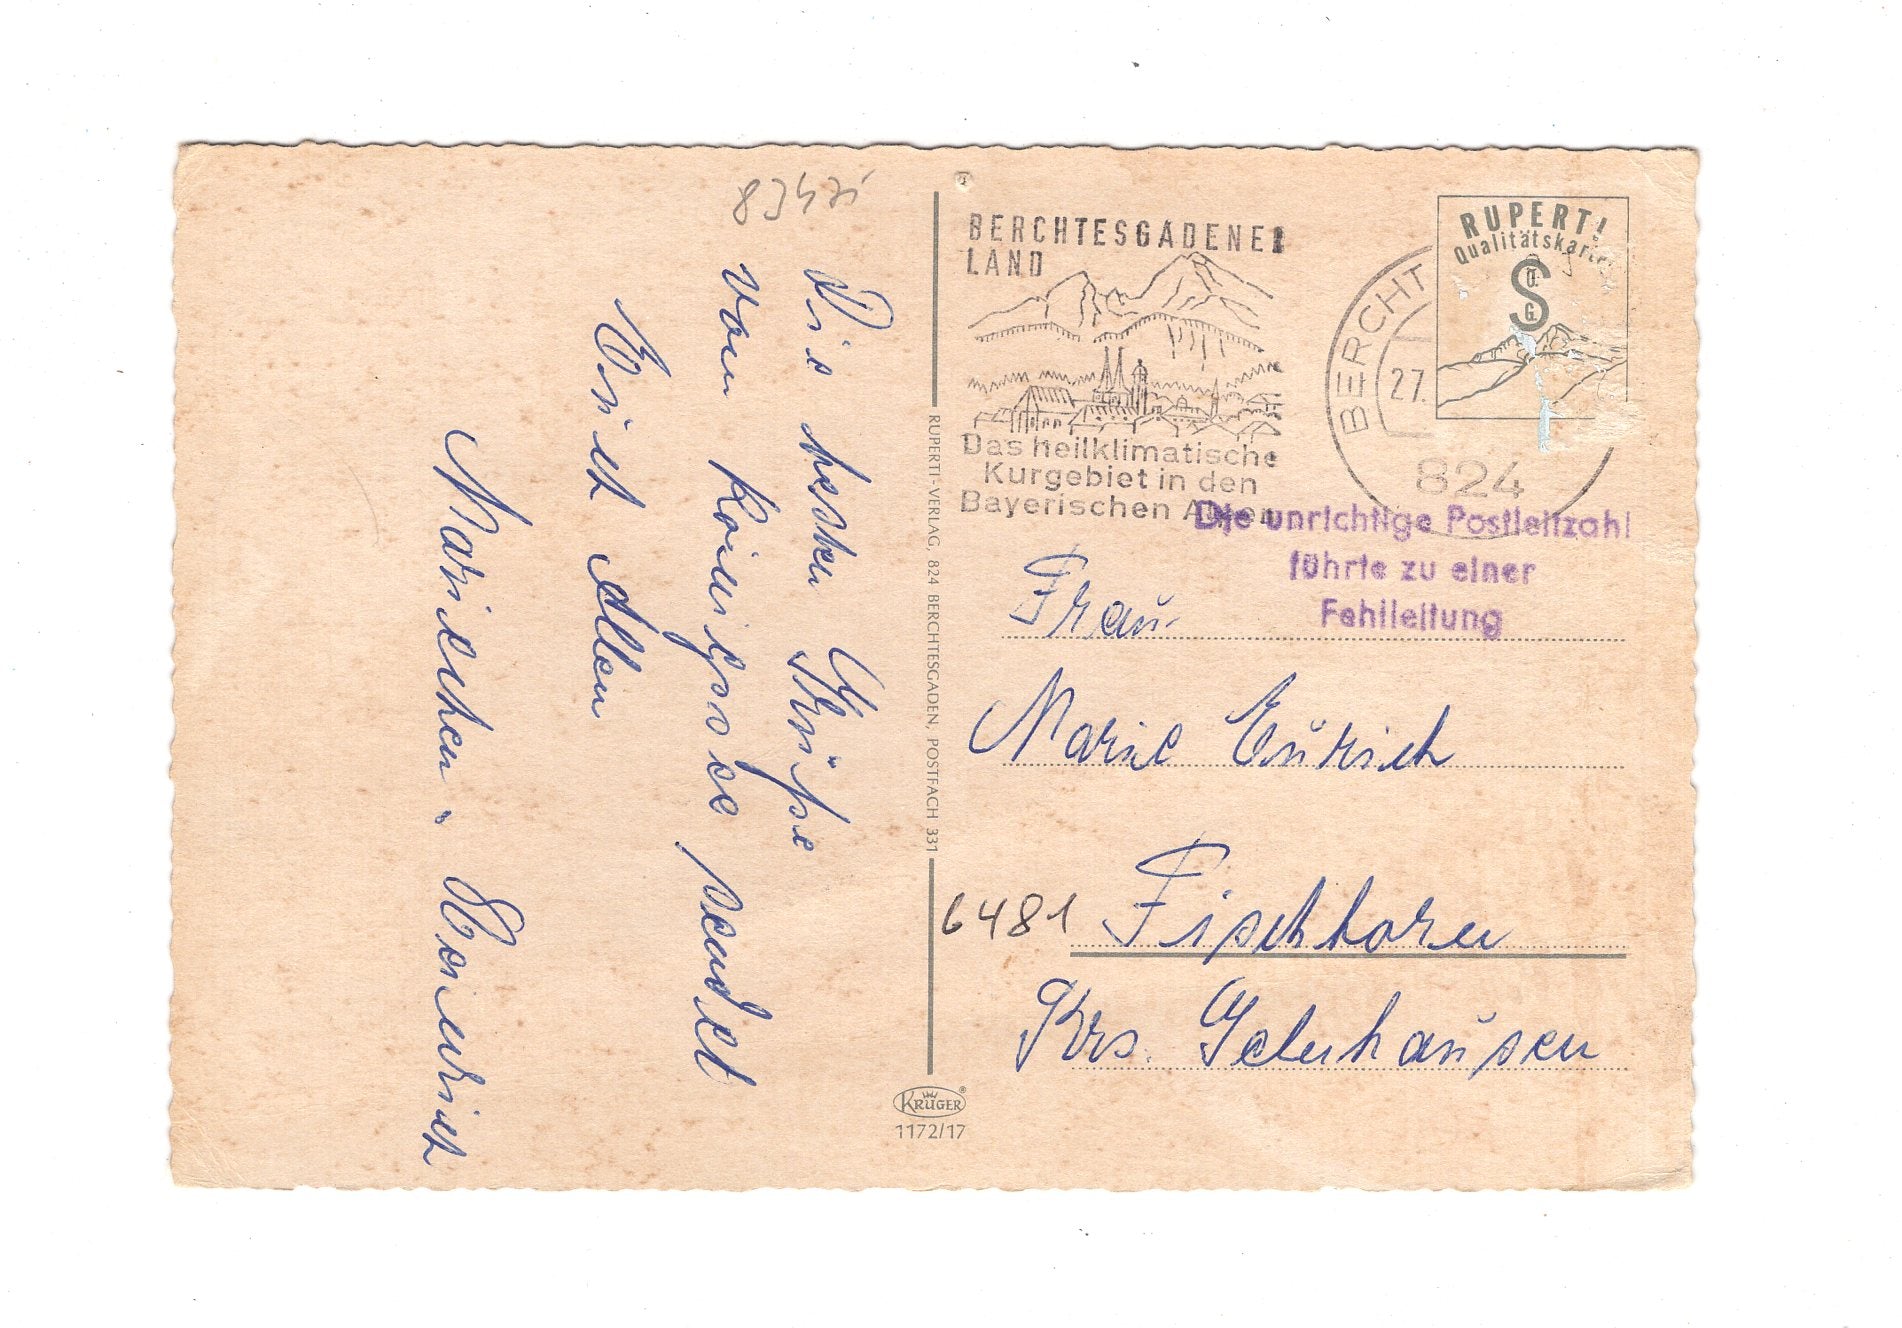 Die besten Grüße
vom Königssee sendet
Euch Allen
Mariechen u. Heinrich
BERCHTESGADENER
LAND
Das heilklimatische
Kurgebiet in den
Bayerischen Alpen
BERCHT
27.
824
RUPERTI
Qualitätskarte
S
O.
G.
Die unrichtige Postleitzahl
führte zu einer
Fehlleitung
Frau
Marie Eurich
6481 Fischborn
Krs. Gelnhausen
RUPERTI-VERLAG, 824 BERCHTESGADEN, POSTFACH 331
KRÜGER
1172/17